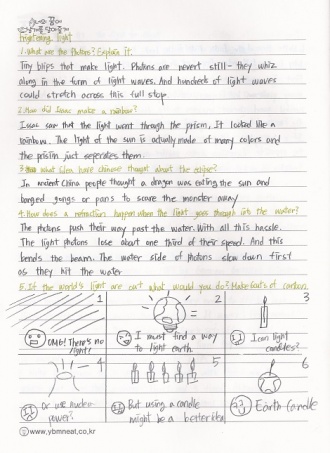 Frightening light
1. What are the Photons? Explain it.
Tiny blips that make light. Photons are never still - they whiz
along in the form of light waves. And hundreds of light waves
could stretch across this full stop.
2. How did Isaac make a rainbow?
Isaac saw that the light went through the prism, It looked like a
rainbow. The light of the sun is actually made of many colors and
the prisim just seperates them.
3. what have chinese thought about the eclipse?
In ancient China people thought a dragon was eating the sun and
banged gongs or pans to scare the monster away
4. How does a refraction happen when the light goes through into the water?
The photons push their way past the water. With all this hassle.
The light photons lose about one third of their speed. And this
bends the beam. The water side of photons slow down first
as they hit the water
5. If the world's light are out what would you do? Make 6cuts of cartoon.
1
OMG! There's no
light!
2
I must find a way
to light earth.
3
I can light
candles?
4
Or use nuclear
power?
5
But using a candle
might be a better idea
6
Earth Candle
www.ybmneat.co.kr